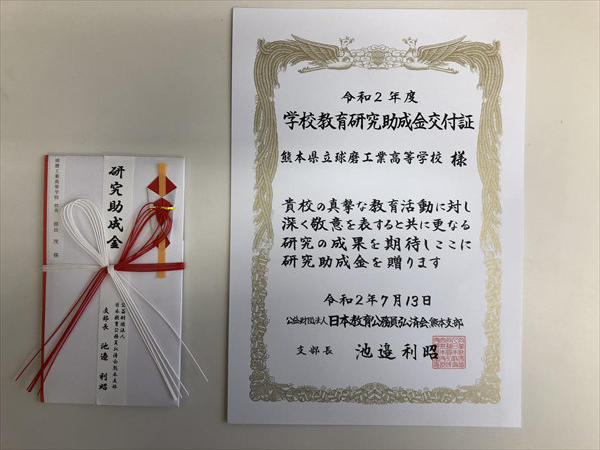 令和2年度
学校教育研究助成金交付証
熊本県立球磨工業高等学校 様
貴校の真摯な教育活動に対し
深く敬意を表すると共に更なる
研究の成果を期待しここに
研究助成金を贈ります
令和2年7月13日
公益財団法人日本教育公務員弘済会熊本支部
支部長 池邉利昭
球磨工業高等学校 校長
様
研究助成金
公益財団法人
日本教育公務員弘済会熊本支部
支部長 池邉利昭